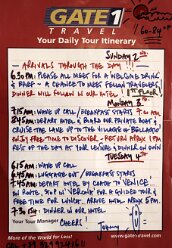 GATE 1
TRAVEL
Your Daily Tour Itinerary
SUNDAY 2ND
— ARRIVALS THROUGH THE DAY !!!
6.30PM: PLEASE ALL MEET FOR A WELCOME DRINK &
— A CHANCE TO MEET FELLOW TRAVELERS!
DINNER WILL FOLLOW IN OUR HOTEL.
MONDAY 3
7.15AM: WAKE UP CALL / BREAKFAST STARTS
8.45AM: DEPART AS BLACK PRIVATE BOAT &
CRUISE THE LAKE UP TO THE VILLAGE OF BELLAGIO
ENJOY FREE TIME TO DISCOVER - RETURN
REST OF THE DAY AT YOUR LEISURE & DINNER ON OWN
TUESDAY 4TH
6.15AM: WAKE UP CALL
6.45AM: LUGGAGE OUT / BREAKFAST STARTS
7.45AM: DEPART HOTEL BY COACH TO 'VENICE'
EN ROUTE, STOP IN 'VERONA' FOR A GUIDED TOUR &
FREE TIME FOR LUNCH. ARRIVE HOTEL ABOUT 5PM.
7.30PM: DINNER IN OUR HOTEL
Your Tour Manager
CHEERS!
More of the World for Less!
www.gate1travel.com